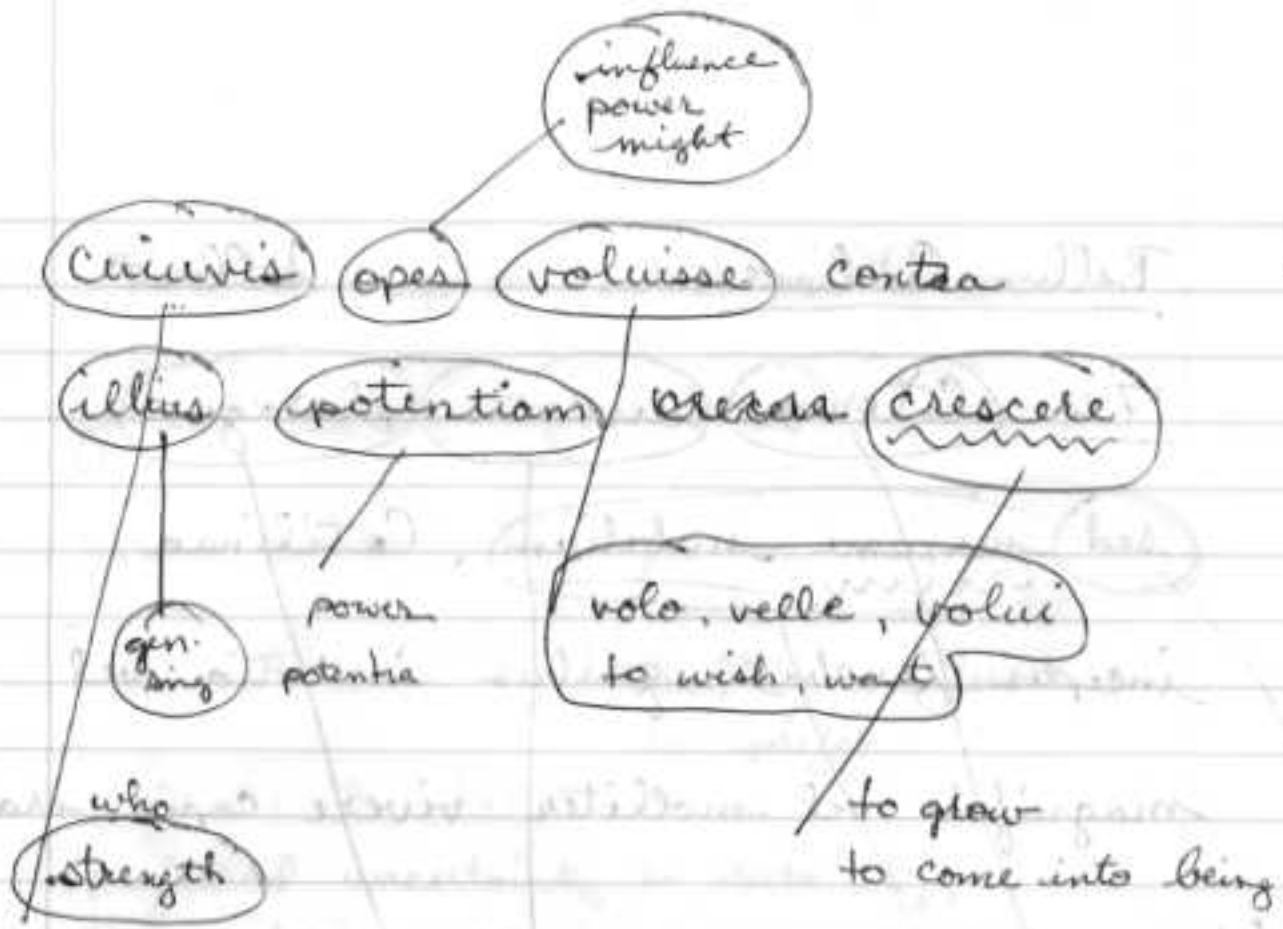 influence
power
might
Cuiuvis opes voluisse contra
illius potentiam crescere
gen.
sing
power
potentia
volo, velle, volui
to wish, want
who
strength
to grow
to come into being